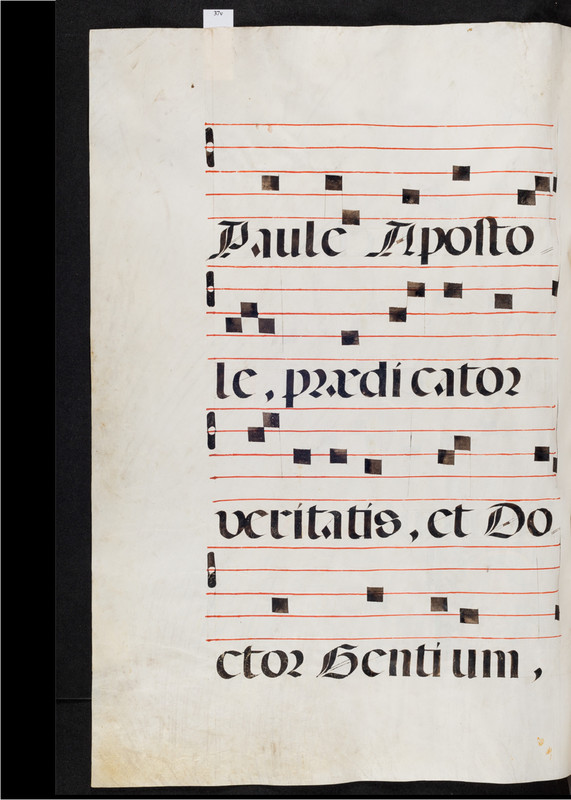 37v
Paule Aposto
le, prædicator
veritatis, et Do
ctor Gentium,